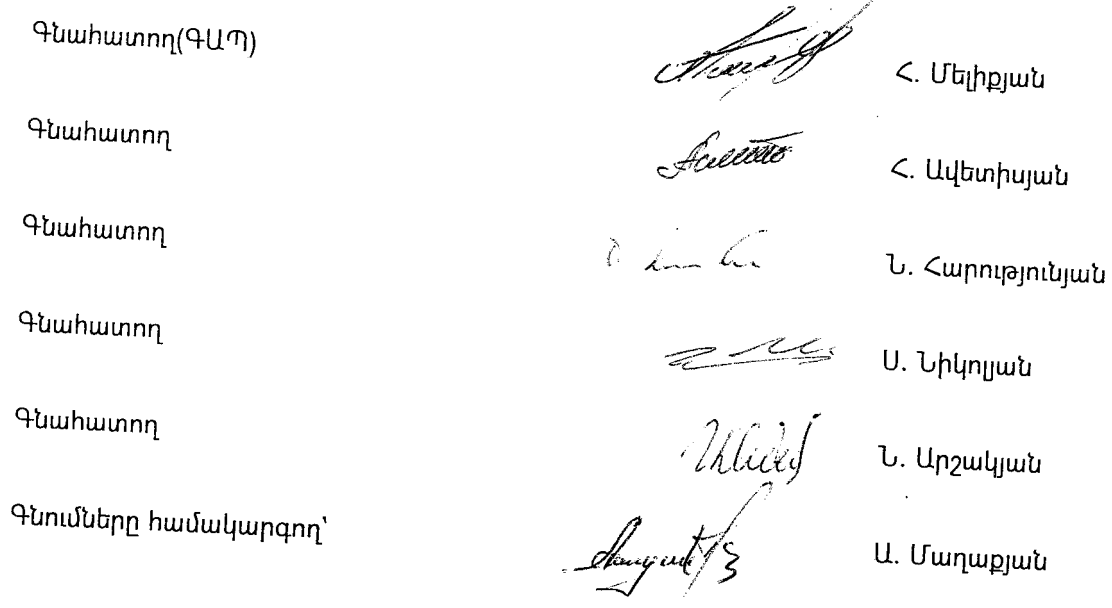 Գնահատող(ԳԱՊ) Հ. Մելիքյան
Գնահատող Հ. Ավետիսյան
Գնահատող Ն. Հարությունյան
Գնահատող Ս. Նիկոլյան
Գնահատող Ն. Արշակյան
Գնումները համակարգող՝ Ա. Մաղաքյան